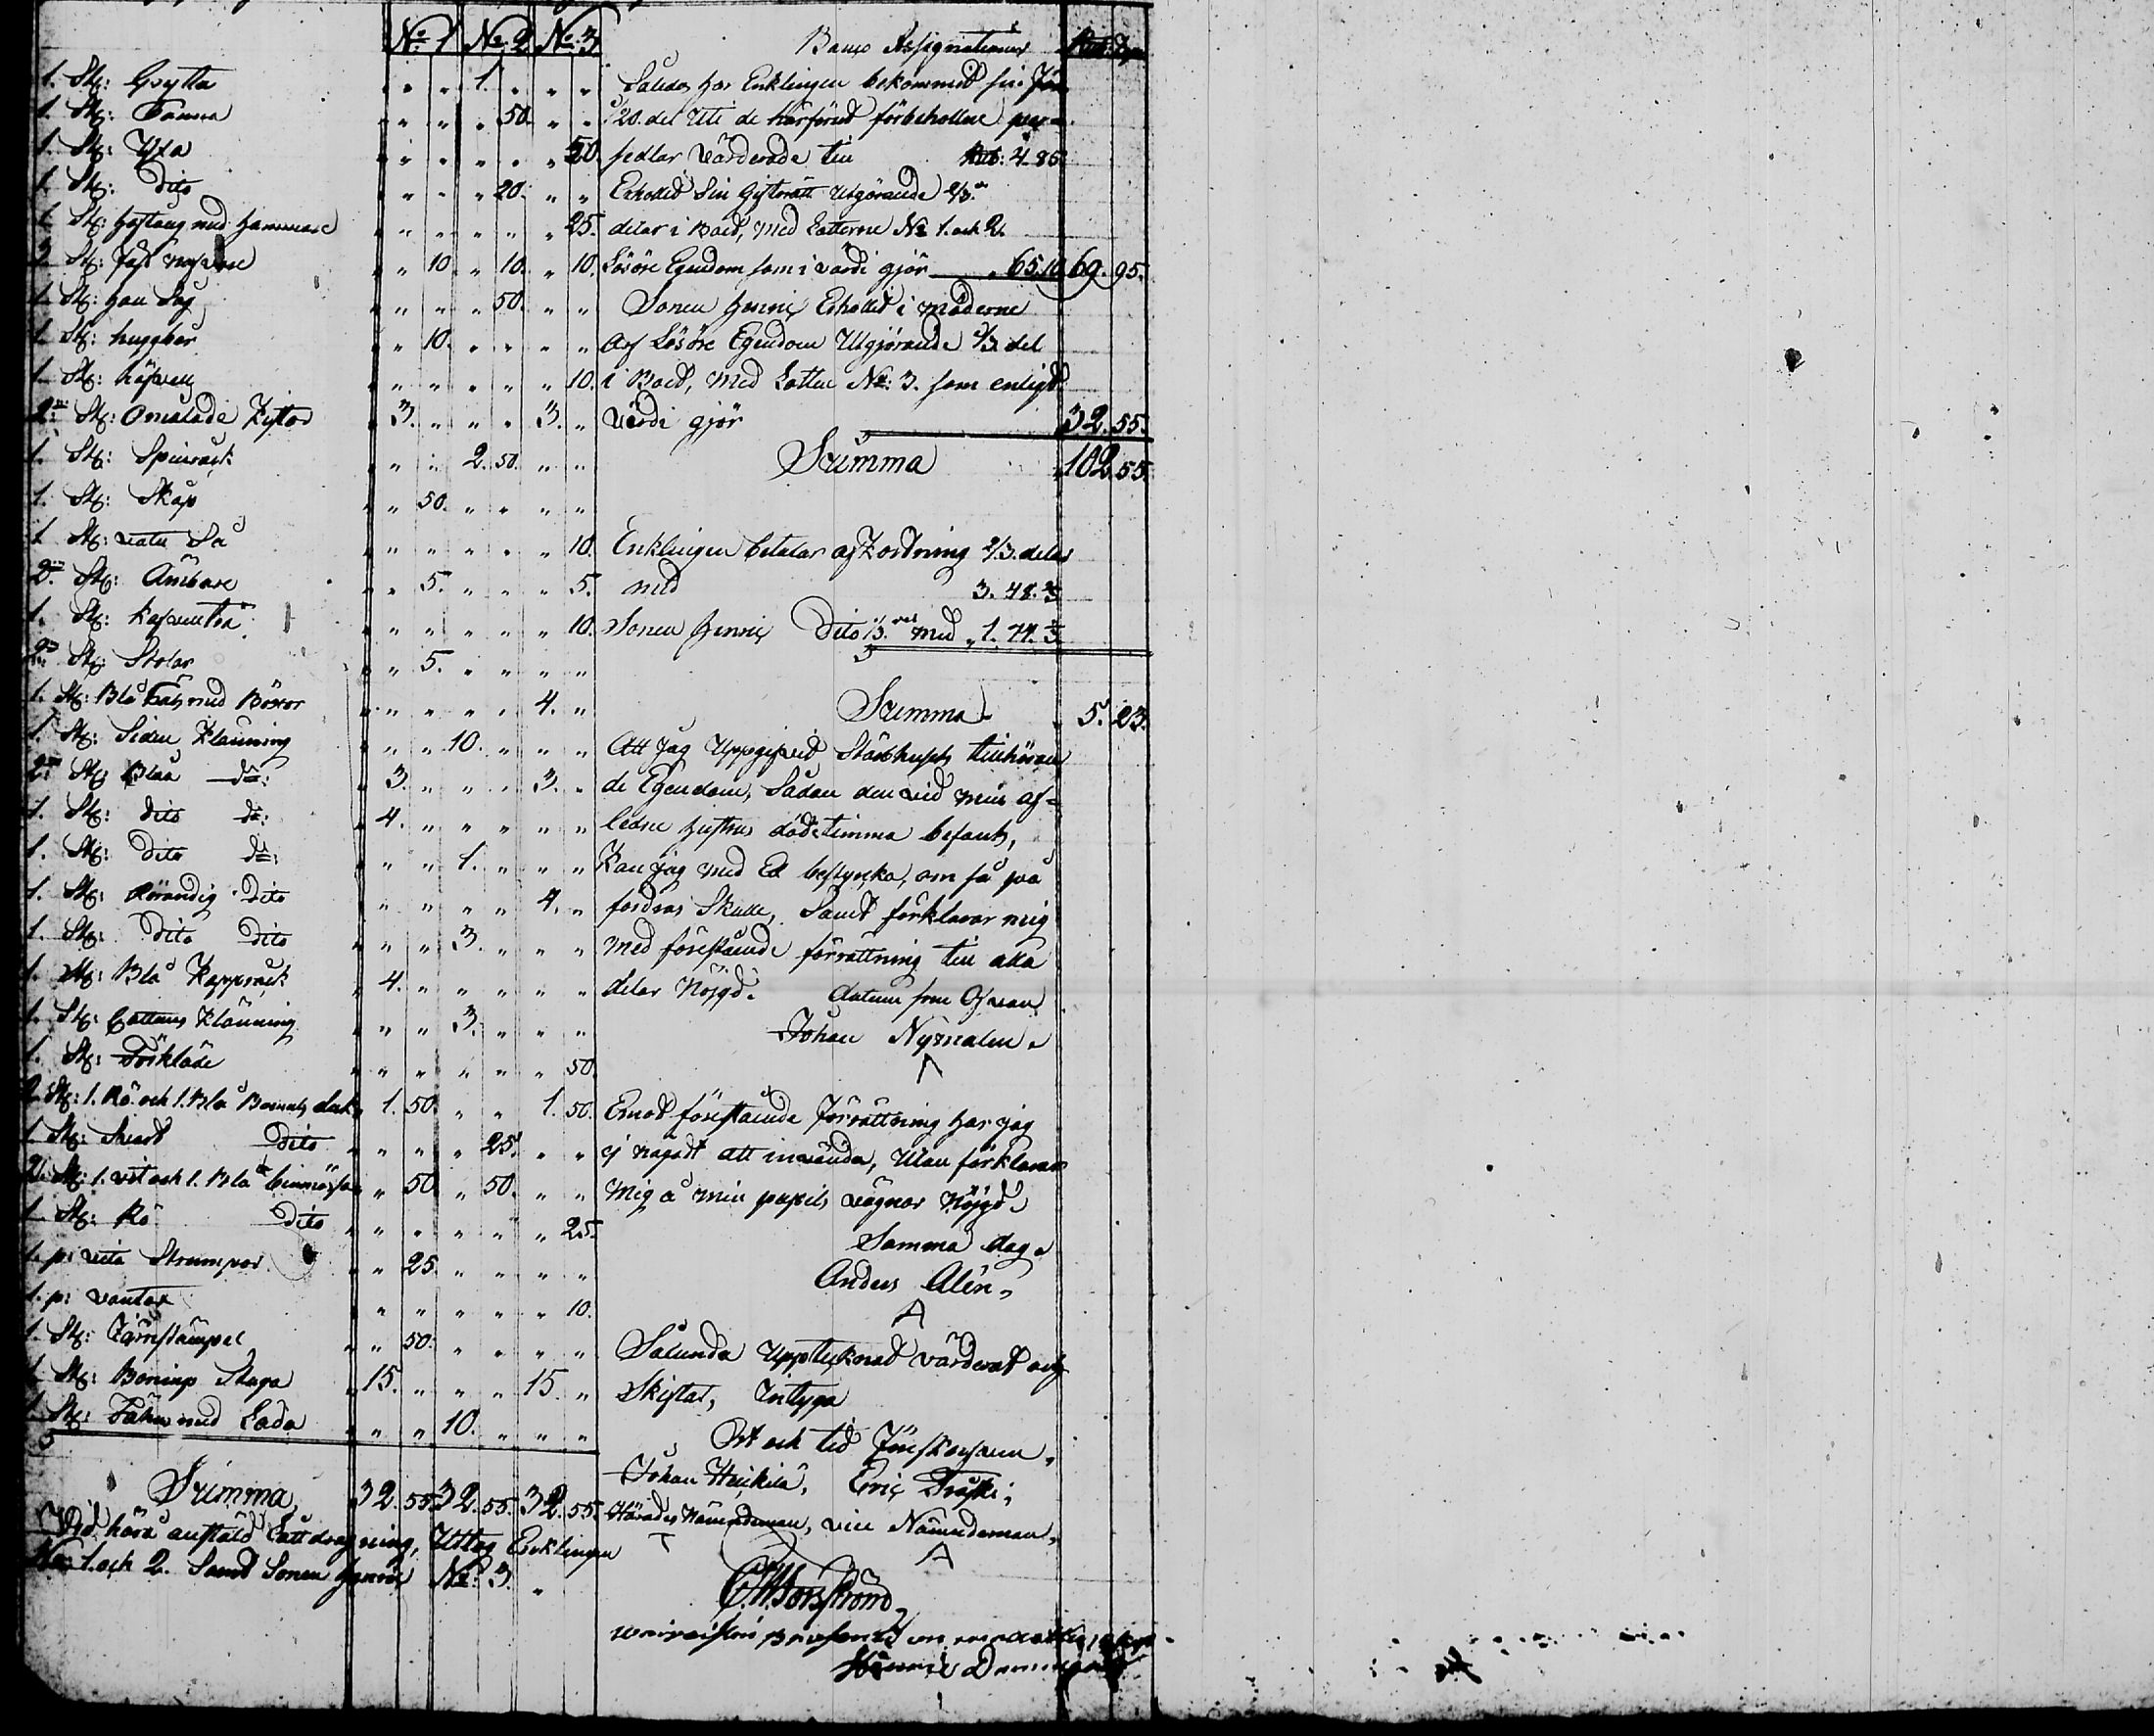 No. 1 No. 2 No. 3
1. St: Grytta " " " 1. " " "
1. St: Panna " " " " 50. " "
1. St: Yxa " " " " " " 50.
1. St: dito " " " " 20. " "
1. St: hoftång med hammare " " " " " " 25.
3 St: " " 10. " 10. " 10.
1. St: han Såg " " " " 50. " "
1. St: huggbar " " 10. " " " "
1. St: " " " " " " 10.
2ne St: Omalade Kistor " 3. " " " 3. "
1. St: Spinråck " " " 2. 50. " "
1. St: Skåp " " 50. " " " "
1 St: vatu Så " " " " " " 10.
2ne St: Ämbare " " 5. " " " 5.
1. St: " " " " " " 10.
2ne St: Stolar " " 5. " " " "
1. St: Blå med Böxor " " " " " 4. "
1. St: Siden Klänning " " " 10. " " "
2ne St: Blåa do: " 3. " " " 3. "
1. St: dito do: " 4. " " " " "
1. St: dito do: " " " 1. " " "
1. St: Rörandig dito " " " " " 4. "
1. St: dito dito " " " 3. " " "
1. St: Blå Kappråck " 4. " " " " "
1. St: Cattuns Klänning " " " 3. " " "
1. St: Förkläde " " " " " " 50.
2 St: 1. Rö och 1. Blå Bomuls duk " 1. 50. " " 1. 50.
1 St: Svart dito " " " " 25. " "
2. St: 1. vit och 1. Blå binmössa " " 50 " 50. " "
1 St: Rö dito " " " " " " 25.
1. p: vita Strumpor " " 25. " " " "
1. p: vantar " " " " " " 10.
1. St: Järnstämpel " " 50. " " " "
1. St: Bonings Stuga " 15. " " " 15. "
1. St: Fähus med Lada " " " 10. " " "
Summa, 32. 55. 32. 55. 32. 55.
Vid härå anstäld Lattdragning, Uttog Enklingen
No: 1. och 2. Samt Sonen Henric No: 3. "
Banco Assignationer
Således har Enklingen bekommit sin
1/20. del Uti de härförut förbehollne per-
sedlar Värderade till Rub: 4. 85
Erhollit Sin Giftorätt Utgörande 2/3.
delar i Boed, med Lotterne No 1. och 2.
Lösöre Egendom som i värdi gjör " 65.10 69. 95.
Sonen Henric Erhollit i möderne
Arf Lösöre Egendom Utgjörande 1/3 del
i Boed, med Lotten No: 3. som enligt
Värdi gjör 32. 55.
Summa 102. 55.
Enklingen betalar afkordning 2/3. delar
med 3. 48. 2/3
Sonen Henric Dito 1/3. med " 1. 74. 1/3
Summa " 5. 23.
Att jag Uppgifvid Stärbhusets tillhöran
de Egendom, Sådan den vid min af-
ledne hustrus dödstimma befants,
Kan jag med Ed bestyrcka, om så på
fordras Skulle, Samt förklarar mig
med förestående förrättning till alla
delar Nöjgd. datum som Ofvan
Johan Nysmalen.
Emot förestående förrättning har jag
ej någodt att invända, Utan förklarar
mig å min pupils vägnar Nöjgd
Samma dag.
Anders Alén,
A
Sålunda Upptecknat värderat och
Skiftat, Intyga
Ort och tid förskrefvne.
Johan Heikilä, Eric Träski,
Härads Nämndeman, vice Nämndeman,
T A